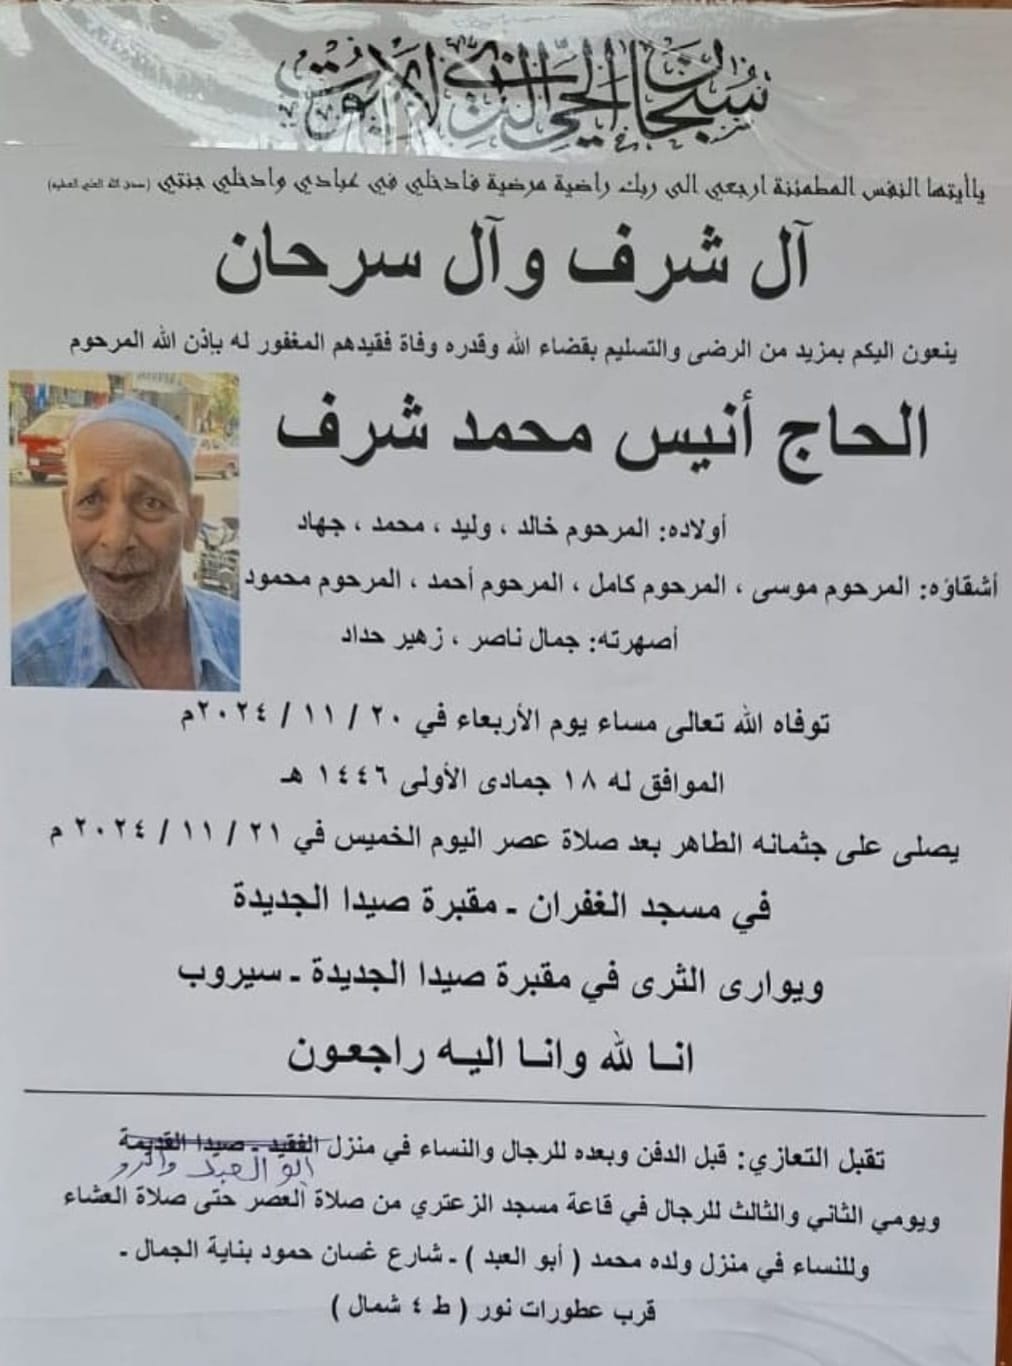 سبحان الحي الذي لا يموت
ياأيتها النفس المطمئنة ارجعي الى ربك راضية مرضية فادخلي في عبادي وادخلي جنتي (صدق الله العلي العظيم)
آل شرف وآل سرحان
ينعون اليكم بمزيد من الرضى والتسليم بقضاء الله وقدره وفاة فقيدهم المغفور له بإذن الله المرحوم
الحاج أنيس محمد شرف
أولاده: المرحوم خالد ، وليد ، محمد ، جهاد
أشقاؤه: المرحوم موسى ، المرحوم كامل ، المرحوم أحمد ، المرحوم محمود
أصهرته: جمال ناصر ، زهير حداد
توفاه الله تعالى مساء يوم الأربعاء في ٢٠ / ١١ / ٢٠٢٤م
الموافق له ١٨ جمادى الأولى ١٤٤٦ هـ
يصلى على جثمانه الطاهر بعد صلاة عصر اليوم الخميس في ٢١ / ١١ / ٢٠٢٤ م
في مسجد الغفران - مقبرة صيدا الجديدة
ويوارى الثرى في مقبرة صيدا الجديدة - سيروب
انا لله وانا اليه راجعون
تقبل التعازي: قبل الدفن وبعده للرجال والنساء في منزل الفقيد - صيدا القديمة
ابو العبد
ويومي الثاني والثالث للرجال في قاعة مسجد الزعتري من صلاة العصر حتى صلاة العشاء
وللنساء في منزل ولده محمد ( أبو العبد ) - شارع غسان حمود بناية الجمال -
قرب عطورات نور ( ط ٤ شمال )